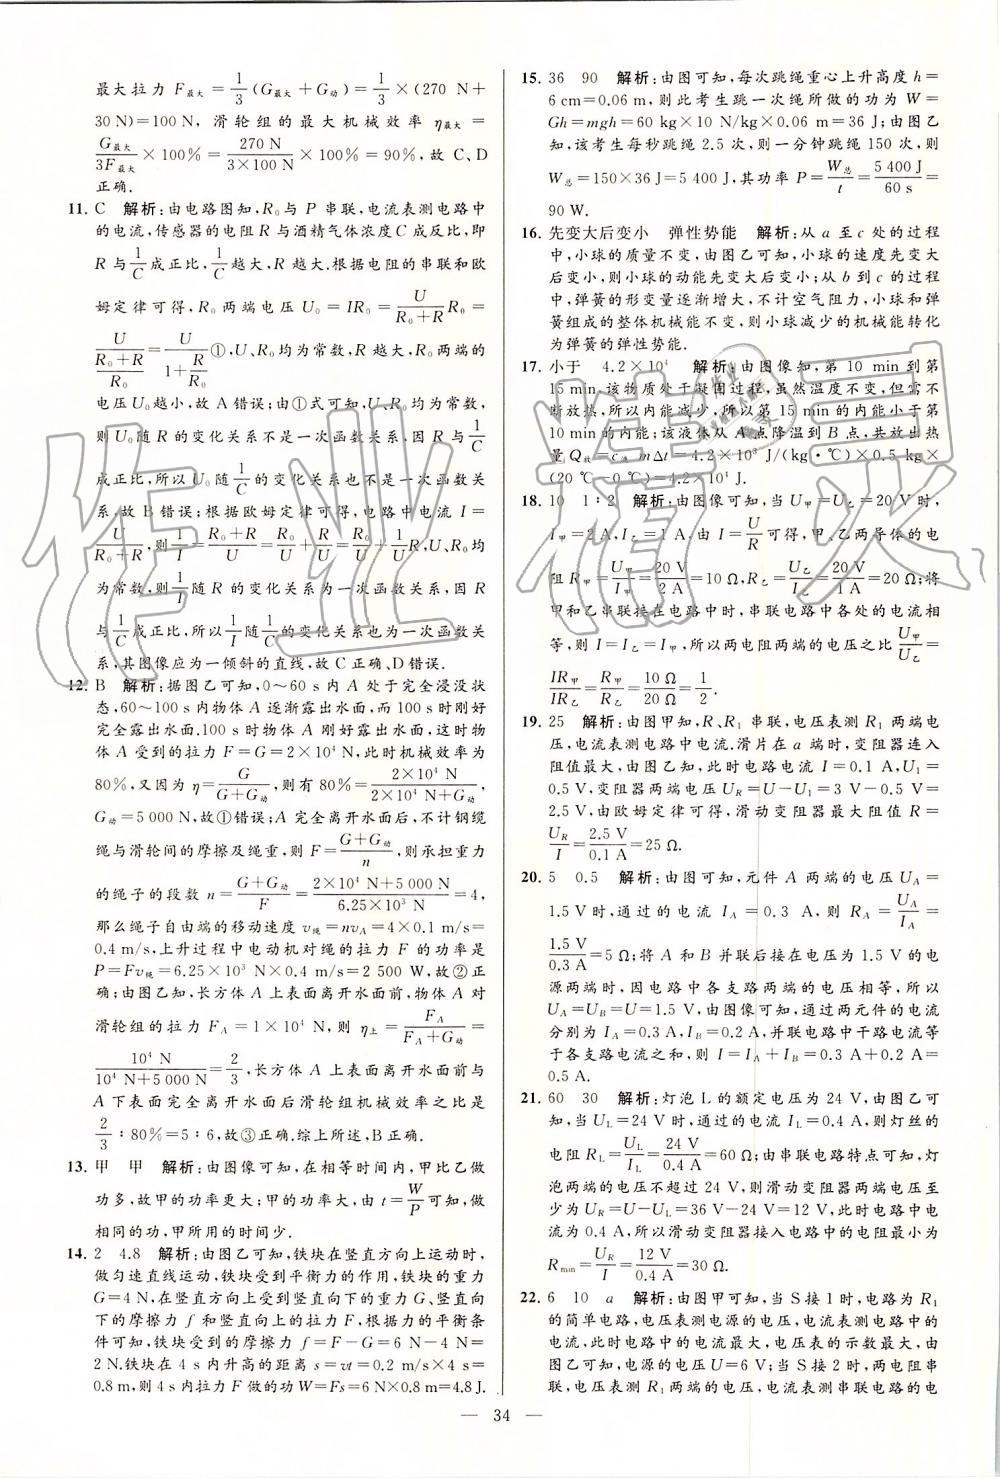 最大拉力 F最大=1/3(G最大+G动)=1/3×(270 N+
30 N)=100 N，滑轮组的最大机械效率 η最大=
G最大/3F最大×100%=270 N/3×100 N×100%=90%，故 C、D
正确.
11. C 解析:由电路图知,R₀与 P 串联,电流表测电路中
的电流,传感器的电阻 R 与酒精气体浓度 C 成反比,即
R 与1/C成正比,1/C越大,R 越大.根据电阻的串联和欧
姆定律可得,R₀ 两端电压 U₀=IR₀=U/(R₀+R)R₀=
U/((R₀+R)/R₀)=U/(1+R/R₀)①,U、R₀均为常数,R 越大,R₀ 两端的
电压U₀越小,故 A 错误;由①式可知,U、R₀均为常数,
则 U₀随 R 的变化关系不是一次函数关系,因 R 与1/C
成正比,所以 U₀随1/C的变化关系也不是一次函数关
系,故 B 错误;根据欧姆定律可得,电路中电流 I=
U/(R₀+R),则1/I=(R₀+R)/U=R₀/U+R/U=R₀/U+1/U R,U、R₀均
为常数,则1/I随 R 的变化关系为一次函数关系,因 R
与1/C成正比,所以1/I随1/C的变化关系也为一次函数关
系,其图像应为一倾斜的直线,故 C 正确、D 错误.
12. B 解析:据图乙可知,0～60 s 内 A 处于完全浸没状
态,60～100 s内物体 A 逐渐露出水面,而 100 s时刚好
完全露出水面.100 s时物体 A 刚好露出水面,这时物
体 A 受到的拉力 F=G=2×10⁴ N,此时机械效率为
80%,又因为 η=G/(G+G动),则有 80%=2×10⁴ N/(2×10⁴ N+G动),
G动=5 000 N,故①错误;A 完全离开水面后,不计钢缆
绳与滑轮间的摩擦及绳重,则 F=(G+G动)/n,则承担重力
的绳子的段数 n=(G+G动)/F=(2×10⁴ N+5 000 N)/(6.25×10³ N)=4,
那么绳子自由端的移动速度 v绳=nvA=4×0.1 m/s=
0.4 m/s,上升过程中电动机对绳的拉力 F 的功率是
P=Fv绳=6.25×10³ N×0.4 m/s=2 500 W,故②正
确;由图乙知,长方体 A 上表面离开水面前,物体 A 对
滑轮组的拉力 FA=1×10⁴ N,则 η上=FA/(FA+G动)=
10⁴ N/(10⁴ N+5 000 N)=2/3,长方体 A 上表面离开水面前与
A 下表面完全离开水面后滑轮组机械效率之比是
2/3∶80%=5∶6,故③正确.综上所述,B正确.
13. 甲 甲 解析:由图像可知,在相等时间内,甲比乙做
功多,故甲的功率更大;甲的功率大,由 t=W/P可知,做
相同的功,甲所用的时间少.
14. 2 4.8 解析:由图乙可知,铁块在竖直方向上运动时,
做匀速直线运动,铁块受到平衡力的作用,铁块的重力
G=4 N,在竖直方向上受到竖直向下的重力 G、竖直向
下的摩擦力 f 和竖直向上的拉力 F,根据力的平衡条
件可知,铁块受到的摩擦力 f=F-G=6 N-4 N=
2 N.铁块在 4 s 内升高的距离 s=vt=0.2 m/s×4 s=
0.8 m,则 4 s 内拉力 F 做的功 W=Fs=6 N×0.8 m=4.8 J.
15. 36 90 解析:由图可知,每次跳绳重心上升高度 h=
6 cm=0.06 m,则此考生跳一次绳所做的功为 W=
Gh=mgh=60 kg×10 N/kg×0.06 m=36 J;由图乙
知,该考生每秒跳绳 2.5 次,则一分钟跳绳 150 次,则
W总=150×36 J=5 400 J,其功率 P=W总/t=5 400 J/60 s=
90 W.
16. 先变大后变小 弹性势能 解析:从 a 至 c 处的过程
中,小球的质量不变,由图乙可知,小球的速度先变大
后变小,则小球的动能先变大后变小;从 b 到 c 的过程
中,弹簧的形变量逐渐增大,不计空气阻力,小球和弹
簧组成的整体机械能不变,则小球减少的机械能转化
为弹簧的弹性势能.
17. 小于 4.2×10⁴ 解析:由图像知,第 10 min 到第
15 min,该物质处于凝固过程,虽然温度不变,但需不
断放热,所以内能减少,所以第 15 min 的内能小于第
10 min的内能;该液体从 A 点降温到 B 点,共放出热
量 Q放=c液mΔt=4.2×10³ J/(kg·℃)×0.5 kg×
(20 ℃-0 ℃)=4.2×10⁴ J.
18. 10 1∶2 解析:由图像可知,当 U甲=U乙=20 V时,
I甲=2 A,I乙=1 A,由 I=U/R可得,甲、乙两导体的电
阻 R甲=U甲/I甲=20 V/2 A=10 Ω,R乙=U乙/I乙=20 V/1 A=20 Ω;将
甲和乙串联接在电路中时,串联电路中各处的电流相
等,则 I=I乙=I甲,所以两电阻两端的电压之比U甲/U乙=
IR甲/IR乙=R甲/R乙=10 Ω/20 Ω=1/2.
19. 25 解析:由图甲知,R、R₁ 串联,电压表测 R₁ 两端电
压,电流表测电路中电流.滑片在 a 端时,变阻器连入
阻值最大,由图乙知,此时电路电流 I=0.1 A,U₁=
0.5 V,变阻器两端电压 UR=U-U₁=3 V-0.5 V=
2.5 V,由欧姆定律可得,滑动变阻器最大阻值 R=
UR/I=2.5 V/0.1 A=25 Ω.
20. 5 0.5 解析:由图可知,元件 A 两端的电压 UA=
1.5 V时,通过的电流 IA=0.3 A,则 RA=UA/IA=
1.5 V/0.3 A=5 Ω;将 A 和 B 并联后接在电压为 1.5 V 的电
源两端时,因电路中各支路两端的电压相等,所以
UA=UB=U=1.5 V,由图像可知,通过两元件的电流
分别为 IA=0.3 A,IB=0.2 A,并联电路中干路电流等
于各支路电流之和,则 I=IA+IB=0.3 A+0.2 A=
0.5 A.
21. 60 30 解析:灯泡 L 的额定电压为 24 V,由图乙可
知,当 UL=24 V时,通过的电流 IL=0.4 A,则灯丝的
电阻 RL=UL/IL=24 V/0.4 A=60 Ω;由串联电路特点可知,灯
泡两端的电压不超过 24 V,则滑动变阻器两端电压至
少为 UR=U-UL=36 V-24 V=12 V,此时电路中电
流为 0.4 A,所以滑动变阻器接入电路中的电阻最小为
Rmin=UR/I=12 V/0.4 A=30 Ω.
22. 6 10 a 解析:由图甲可知,当 S 接 1 时,电路为 R₁
的简单电路,电压表测电源的电压,电流表测电路中的
电流,此时电路中的电流最大,电压表的示数最大,由
图乙可知,电源的电压 U=6 V;当 S 接 2 时,两电阻串
联,电压表测 R₁ 两端的电压,电流表测串联电路的电
— 34 —
作业精灵